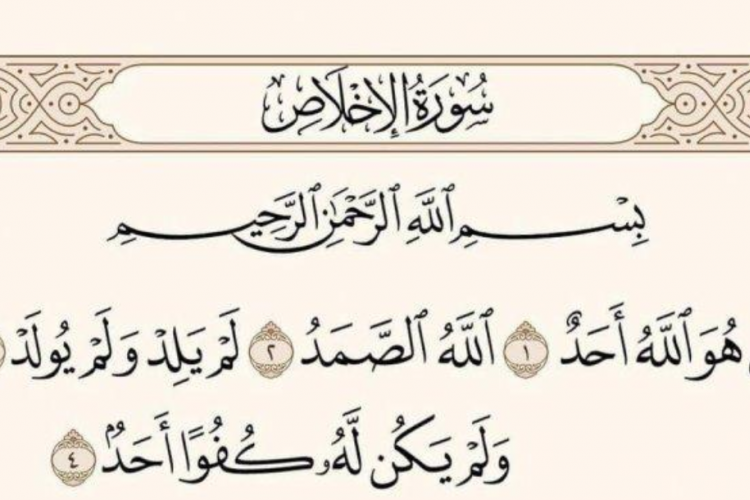 سُورَةُ الإِخْلَاصِ
بِسْمِ ٱللَّهِ ٱلرَّحْمَٰنِ ٱلرَّحِيمِ
هُوَ ٱللَّهُ أَحَدٌ ١ ٱللَّهُ ٱلصَّمَدُ ٢ لَمْ يَلِدْ وَلَمْ يُولَدْ
وَلَمْ يَكُن لَّهُۥ كُفُوًا أَحَدٌۢ ٤